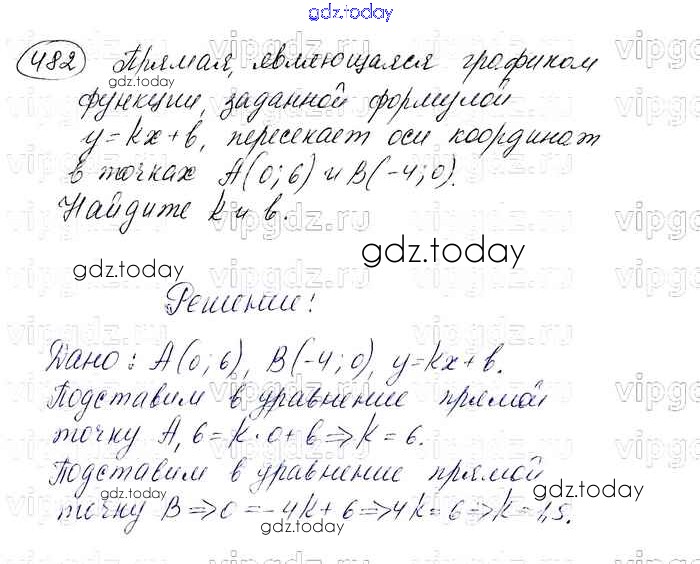 gdz.today
482 Прямая, являющаяся графиком
функции, заданной формулой
y=kx+b, пересекает оси координат
в точках A(0;6) и B(-4;0).
Найдите k и b.
gdz.today
gdz.today
gdz.today
Решение!
Дано: A(0;6), B(-4;0), y=kx+b.
Подставим в уравнение прямой
точку A, 6=k·0+b⇒k=6.
Подставим в уравнение прямой
gdz.today
gdz.today
точку B⇒0=-4k+6⇒4k=6⇒k=1,5.
gdz.today
vipgdz.ru